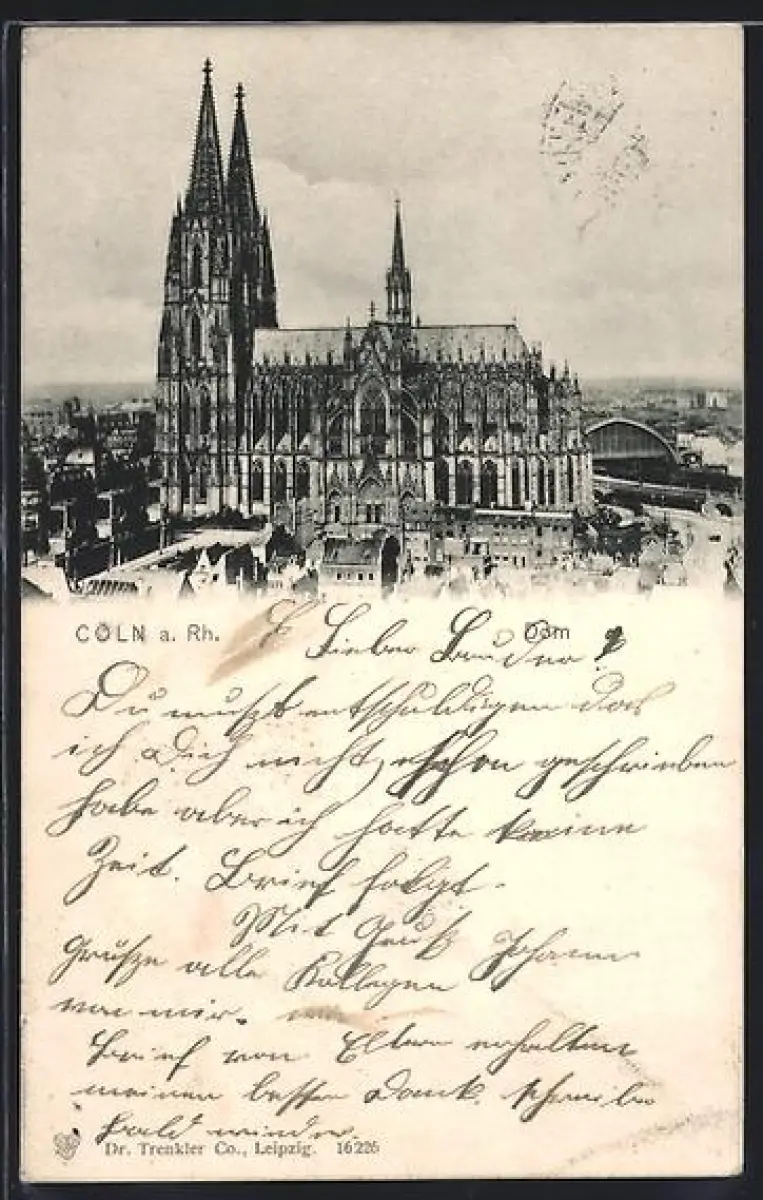 CÖLN a. Rh.
Dom
Lieber Bruder!
Du mußt entschuldigen das
ich Dich nicht schon geschrieben
habe aber ich hatte keine
Zeit. Brief folgt.
Mit Gruß Johann
Grüße alle Kollegen
von mir.
Brief von Eltern erhalten
meinen besten Dank. schreibe
bald wieder.
Dr. Trenkler Co., Leipzig. 16226